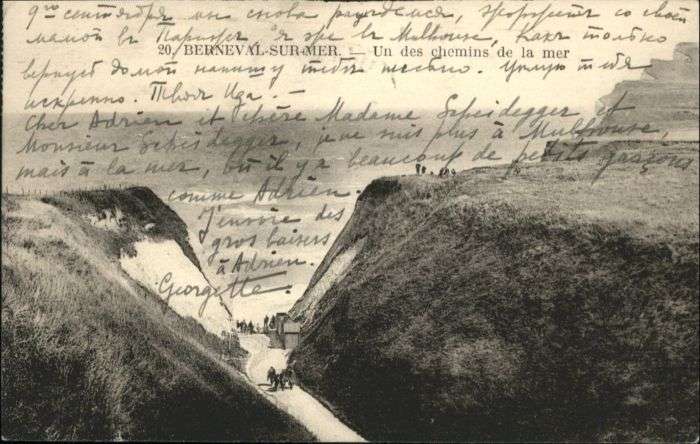 9го сентября мы снова разъедемся, Georgette со своей
мамой в Париж, я же в Mulhouse, какъ только
вернусь домой напишу тебе письмо. Целую тебя
искренно. Твоя Ида. -
20. BERNEVAL-SUR-MER. — Un des chemins de la mer
Cher Adrien et chère Madame Scheidegger et
Monsieur Scheidegger, je ne suis plus à Mulhouse,
mais à la mer, où il y a beaucoup de petits garçons
comme Adrien.
J'envoie des
gros baisers
à Adrien.
Georgette.